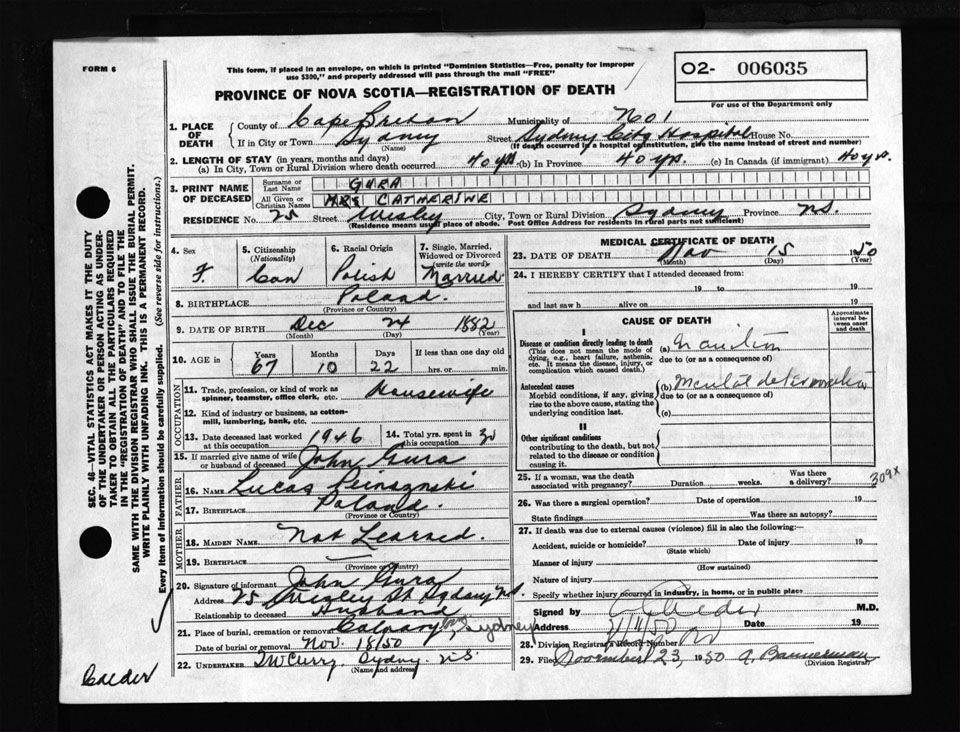 FORM 6
This form, if placed in an envelope, on which is printed "Dominion Statistics—Free, penalty for improper
use $300," and properly addressed will pass through the mail "FREE"
O2- 006035
PROVINCE OF NOVA SCOTIA—REGISTRATION OF DEATH
For use of the Department only
1. PLACE OF DEATH County of Cape Breton Municipality of No 1
If in City or Town Sydney (Name) Street Sydney City Hospital House No.
(If death occurred in a hospital or institution, give the name instead of street and number)
2. LENGTH OF STAY (in years, months and days)
(a) In City, Town or Rural Division where death occurred 40 yrs (b) In Province 40 yrs. (c) In Canada (if immigrant) 40 yrs.
3. PRINT NAME OF DECEASED
Surname or Last Name GURA
All Given or Christian Names MRS CATHERINE
RESIDENCE No. 25 Street City, Town or Rural Division Sydney Province N.S.
(Residence means usual place of abode. Post Office Address for residents in rural parts not sufficient)
4. Sex F.
5. Citizenship (Nationality) Can
6. Racial Origin Polish
7. Single, Married, Widowed or Divorced (write the word) Married
8. BIRTHPLACE Poland.
(Province or Country)
9. DATE OF BIRTH Dec 24 1882
(Month) (Day) (Year)
10. AGE in Years 67 Months 10 Days 22 If less than one day old
hrs. or min.
OCCUPATION
11. Trade, profession, or kind of work as spinner, teamster, office clerk, etc. Housewife
12. Kind of industry or business, as cotton-mill, lumbering, bank, etc.
13. Date deceased last worked at this occupation 1946
14. Total yrs. spent in this occupation 30
15. If married give name of wife or husband of deceased John Gura
FATHER
16. NAME Lucas
17. BIRTHPLACE Poland.
(Province or Country)
MOTHER
18. MAIDEN NAME Not Learned.
19. BIRTHPLACE
(Province or Country)
20. Signature of informant John Gura
Address 25 St Sydney N.S.
Relationship to deceased Husband
21. Place of burial, cremation or removal Calvary Sydney
Date of burial or removal Nov. 18/50
22. UNDERTAKER T W Curry, Sydney. N.S.
(Name and address)
MEDICAL CERTIFICATE OF DEATH
23. DATE OF DEATH Nov 15 1950
(Month) (Day) (Year)
24. I HEREBY CERTIFY that I attended deceased from:
19 to 19
and last saw h alive on 19
CAUSE OF DEATH
Approximate interval between onset and death
I
Disease or condition directly leading to death (a)
(This does not mean the mode of dying, e.g., heart failure, asthenia, etc. It means the disease, injury, or complication which caused death.)
due to (or as a consequence of)
Antecedent causes (b)
Morbid conditions, if any, giving rise to the above cause, stating the underlying condition last.
due to (or as a consequence of)
(c)
II
Other significant conditions
contributing to the death, but not related to the disease or condition causing it.
25. If a woman, was the death associated with pregnancy? Duration weeks. Was there a delivery?
309x
26. Was there a surgical operation? Date of operation 19
State findings Was there an autopsy?
27. If death was due to external causes (violence) fill in also the following:—
Accident, suicide or homicide? Date of injury 19
(State which)
Manner of injury
(How sustained)
Nature of injury
Specify whether injury occurred in industry, in home, or in public place
Signed by M.D.
Address Date 19
28. Division Registrar's Record Number
29. Filed November 23, 1950
(Division Registrar)
SEC. 46—VITAL STATISTICS ACT MAKES IT THE DUTY
OF THE UNDERTAKER OR PERSON ACTING AS UNDER-
TAKER TO OBTAIN ALL THE PARTICULARS REQUIRED
IN THE "REGISTRATION OF DEATH" AND TO FILE THE
SAME WITH THE DIVISION REGISTRAR WHO SHALL ISSUE THE BURIAL PERMIT.
WRITE PLAINLY WITH UNFADING INK. THIS IS A PERMANENT RECORD.
Every item of information should be carefully supplied. (See reverse side for instructions.)
Calder